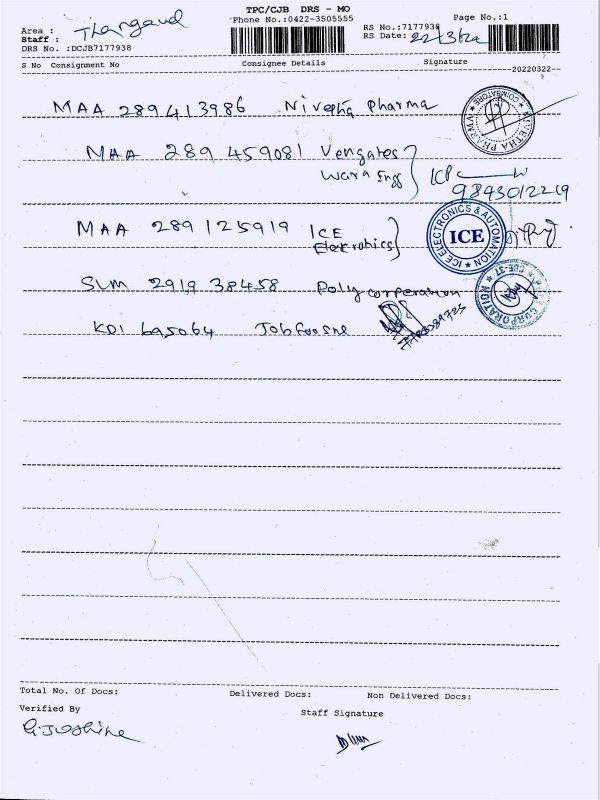 TPC/CJB DRS - MO
Phone No.:0422-3505555
Page No.:1
Area : Thangavel
Staff :
DRS No. :DCJB7177938
RS No.:7177938
RS Date: 22/3/22
S No Consignment No Consignee Details Signature
20220322
MAA 289413986 Nivetha Pharma
COIMBATORE
MAA 289 459081 Vengates
Wara Engg
9843012219
MAA 289125919 ICE
Elektronics
ICE ELECTRONICS & AUTOMATION
ICE
SLM 2919 38458 Polycorperation
CORPORATION
KDI 695064 Jobfoosne
Total No. Of Docs: Delivered Docs: Non Delivered Docs:
Verified By
Staff Signature
G.Joshine